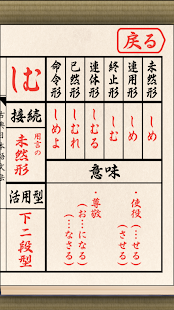 戻る
しむ
接続
用言の
未然形
活用型
下二段型
未然形
しめ
連用形
しめ
終止形
しむ
連体形
しむる
已然形
しむれ
命令形
しめよ
意味
・使役
(…せる)
(…させる)
・尊敬
(お…になる)
(…なさる)